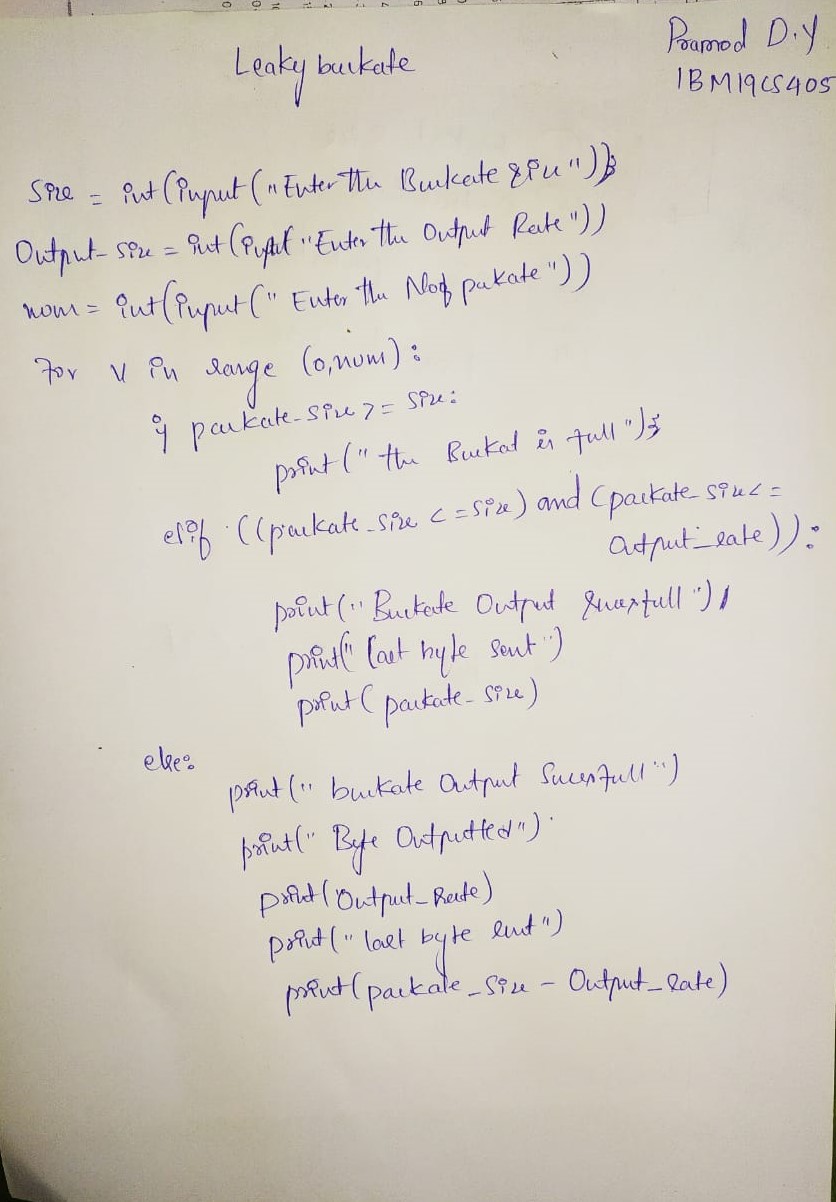 Pramod D.Y
Leaky buckate
1BM19CS405
Size = int(input("Enter the Buckate size"))
Output_size = int(input "Enter the Output Rate"))
nom = int(input(" Enter the No of pakate"))
For V in range (0,nom):
if packate_size >= size:
print(" the Buckat is full");
elif ((packate_size <=size) and (packate_size <=
output_rate)):
print(" Buckate Output sucessfull")
print(" last byte sent")
print(packate_size)
else:
print(" buckate Output Sucessfull")
print(" Byte Outputted")
print(Output_Rate)
print(" last byte sent")
print(packate_size - Output_Rate)